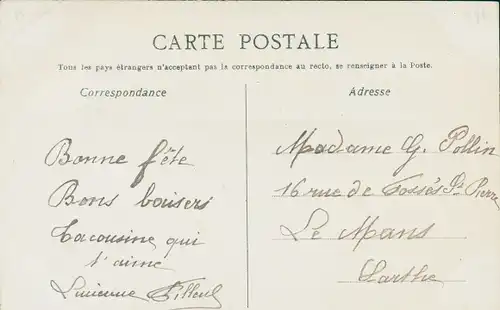 CARTE POSTALE
Tous les pays étrangers n'acceptent pas la correspondance au recto, se renseigner à la Poste.
Correspondance
Bonne fête
Bons baisers
Ta cousine qui
t'aime
Lucienne Filleul
Adresse
Madame G. Pollin
16 rue de Fossés St Pierre
Le Mans
Sarthe